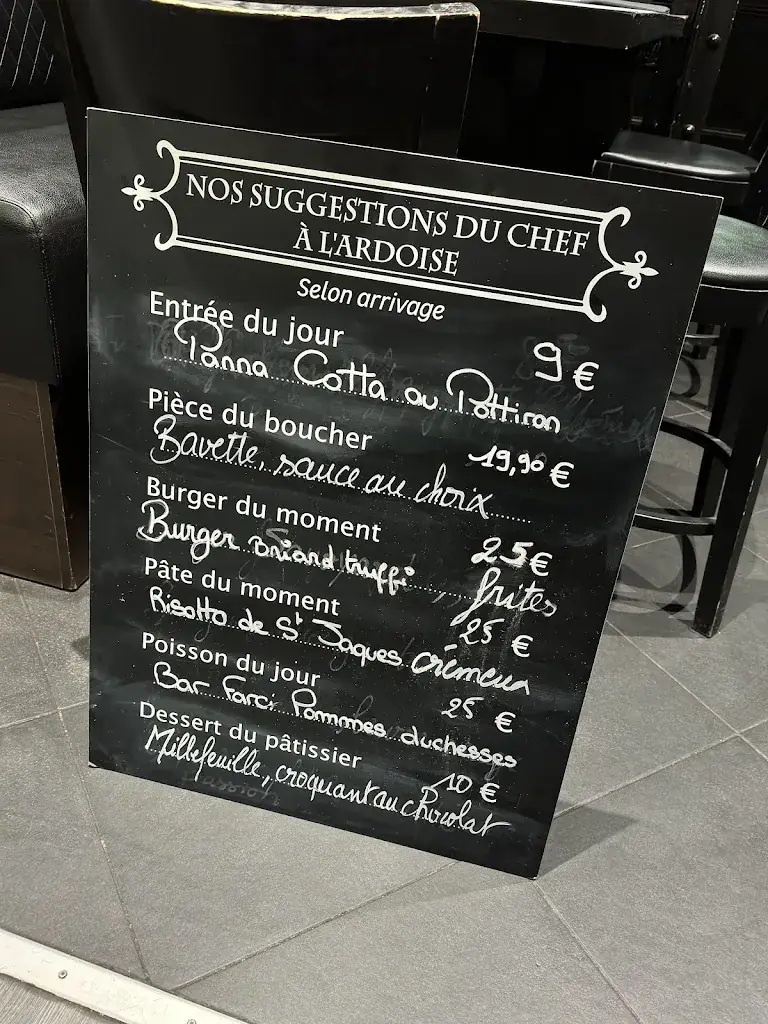 NOS SUGGESTIONS DU CHEF
À L'ARDOISE
Selon arrivage
Entrée du jour 9 €
Panna Cotta au Pottiron
Pièce du boucher 19,90 €
Bavette, sauce au choix
Burger du moment 25 €
Burger Briard truffé, frites
Pâte du moment 25 €
Risotto de St Jaques crémeux
Poisson du jour 25 €
Bar Farci Pommmes duchesses
Dessert du pâtissier 10 €
Millefeuille, croquant au chocolat